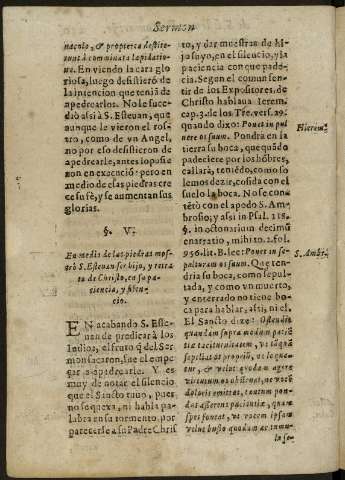 Sermon
naculo, & propterea destite-
runt à comminata lapidatio-
ne. En viendo la cara glo-
riosa, luego desistierò de
la intencion que teniã de
apedrearlos. No le suce-
diò assi à S. Esteuan, que
aunque le vieron el ros-
tro, como de vn Angel,
no por esso desistieron de
apedrearle, antes lo pusie
ron en execuciõ: pero en
medio de las piedras cre
ce su fè, y se aumentan sus
glorias.
§. V.
En medio de las piedras mos-
trò S. Esteuan ser hijo, y retra
to de Christo, en su pa-
ciencia, y silen-
cio.
EN acabando S. Este-
uan de predicar à los
Iudios, el fruto q̃ del Ser
mon sacaron, fue el empe
çar a apedrearle. Y es
muy de notar el silencio
que el Santo tuuo, pues
no se quexa, ni habla pa-
labra en su tormento, por
parecerse a su Padre Chris
to, y dar muestras de hi-
jo suyo, en el silencio, y la
paciencia con que pade-
cia. Segun el comun sen-
tir de los Expositores, de
Christo hablaua Ierem.
cap. 3. de los Tre. vers. 29.
quando dixo: Ponet in pul
uere os suum. Pondrà en la
tierra su boca, que quãdo
padeciere por los hõbres,
callarà, teniẽdo, como so
lemos dezir, cosida con el
suelo la boca. No se con-
tentò con el apodo S. Am
brosio; y assi in Psal. 118.
§. in octonarium decimũ
enarratio, mihi to. 2. fol.
956. lit. B. lee: Ponet in se-
pulturam os suum. Que ten-
dria su boca, como sepul-
tada, y como vn muerto,
y enterrado no tiene bo-
ca para hablar, assi, ni el.
El Santo dize: Ostendis
quandam supra modum paciẽ
tiæ taciturnitatem, vt
quæ, & velut quodam aggere
virtutum os obstruat, ne vocẽ
doloris emittat, tantum pon-
dus afferens patientiæ, quam
spes fouebat, vt vocem ipsam
velut busto quodam ac tumu-
lo se-
Hierem.
S. Ambr.